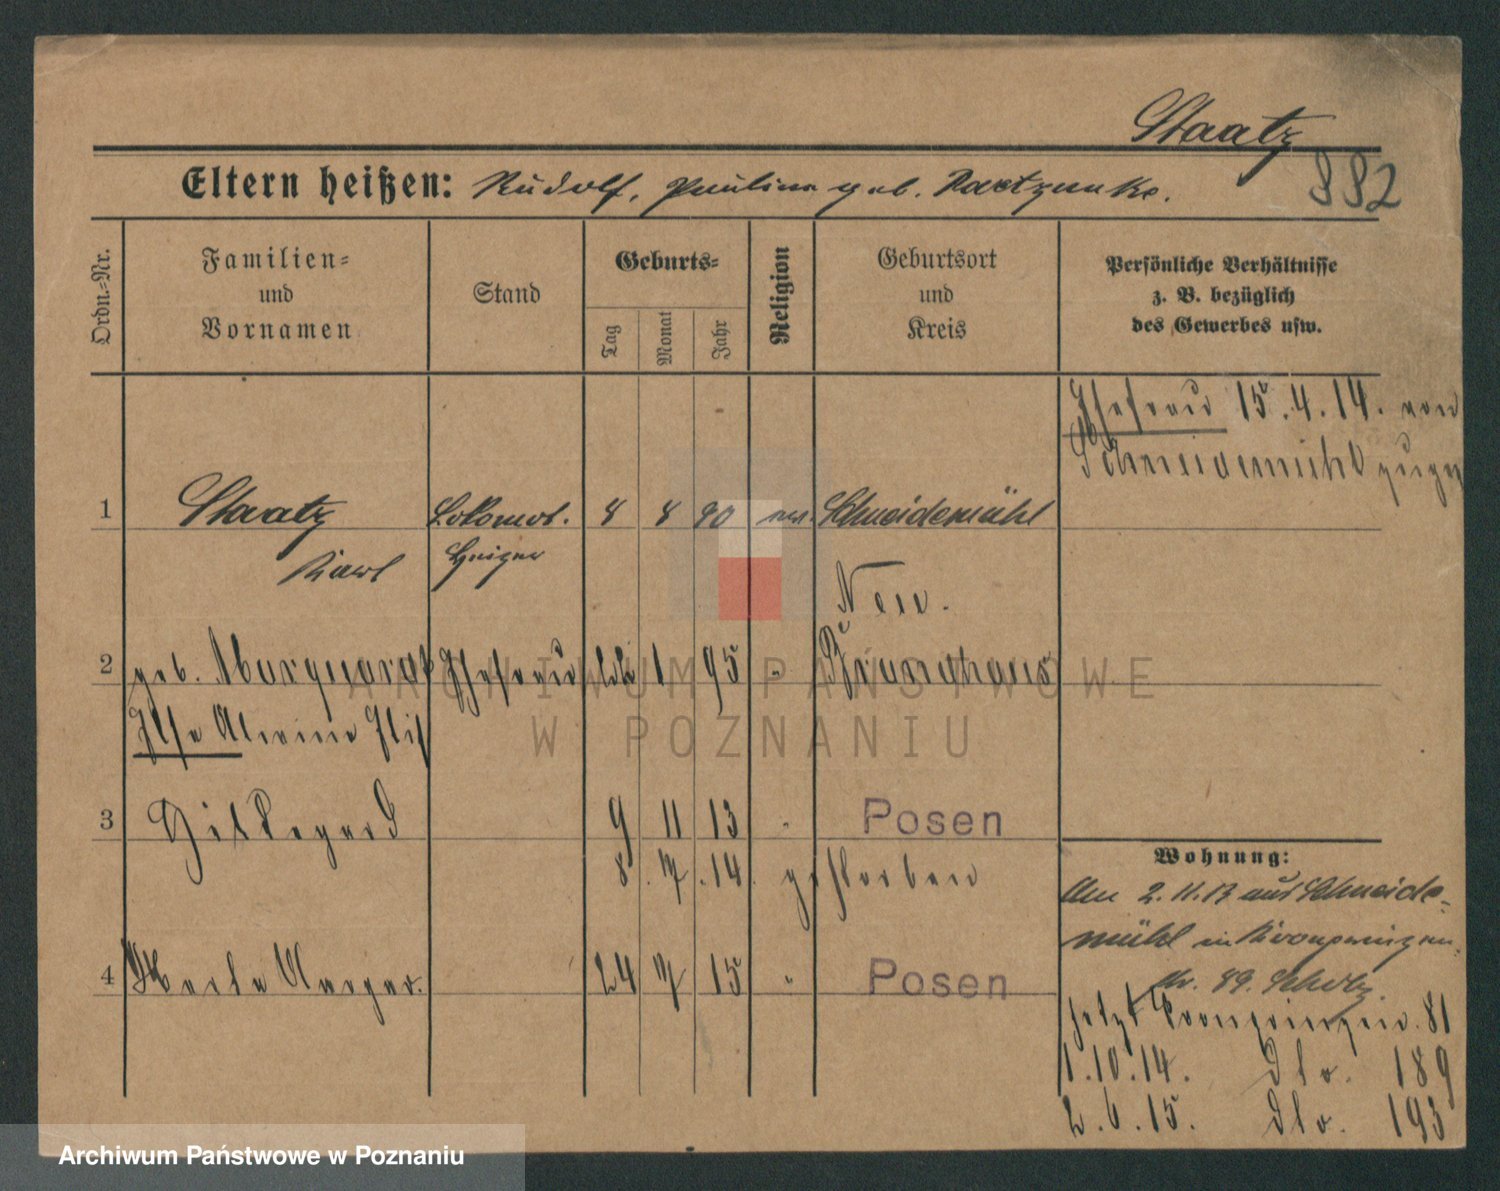 Staatz
882
Eltern heißen: Rudolf, Pauline geb.
Ordn.-Nr.
Familien-
und
Vornamen
Stand
Geburts-
Tag
Monat
Jahr
Religion
Geburtsort
und
Kreis
Persönliche Verhältnisse
z. B. bezüglich
des Gewerbes usw.
Ehefrau 15.4.14. von
Schneidemühl zugez
1 Staatz Lokomot. 8 8 90 ev. Schneidemühl
Karl Heizer
Neu.
2 geb. Marquardt Ehefrau 22 1 95 "
Else Alwine
3 Hildegard 9 11 13 " Posen
8. 7. 14. gestorben
4 Herta 24 7 15 " Posen
Wohnung:
Am 2.11.13 aus Schneide-
mühl in Kronprinzen
str. 89. Scholz.
jetzt Kronprinzen. 81
1.10.14. dto. 189
2.6.15. dto. 193
ARCHIWUM PAŃSTWOWE
W POZNANIU
Archiwum Państwowe w Poznaniu